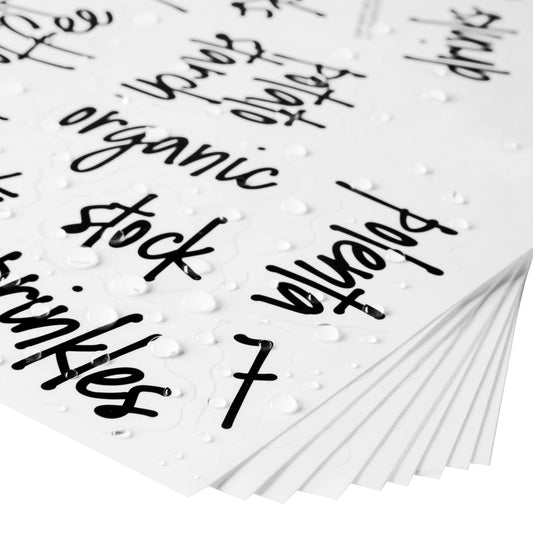 coffee
drinks
potato
starch
organic
stock
polenta
sprinkles
7